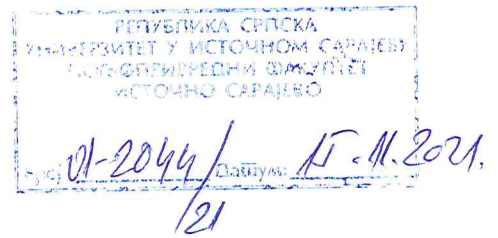 РЕПУБЛИКА СРПСКА
УНИВЕРЗИТЕТ У ИСТОЧНОМ САРАЈЕВУ
ПОЉОПРИВРЕДНИ ФАКУЛТЕТ
ИСТОЧНО САРАЈЕВО
01-2044/ Датум: 11.2021.
21